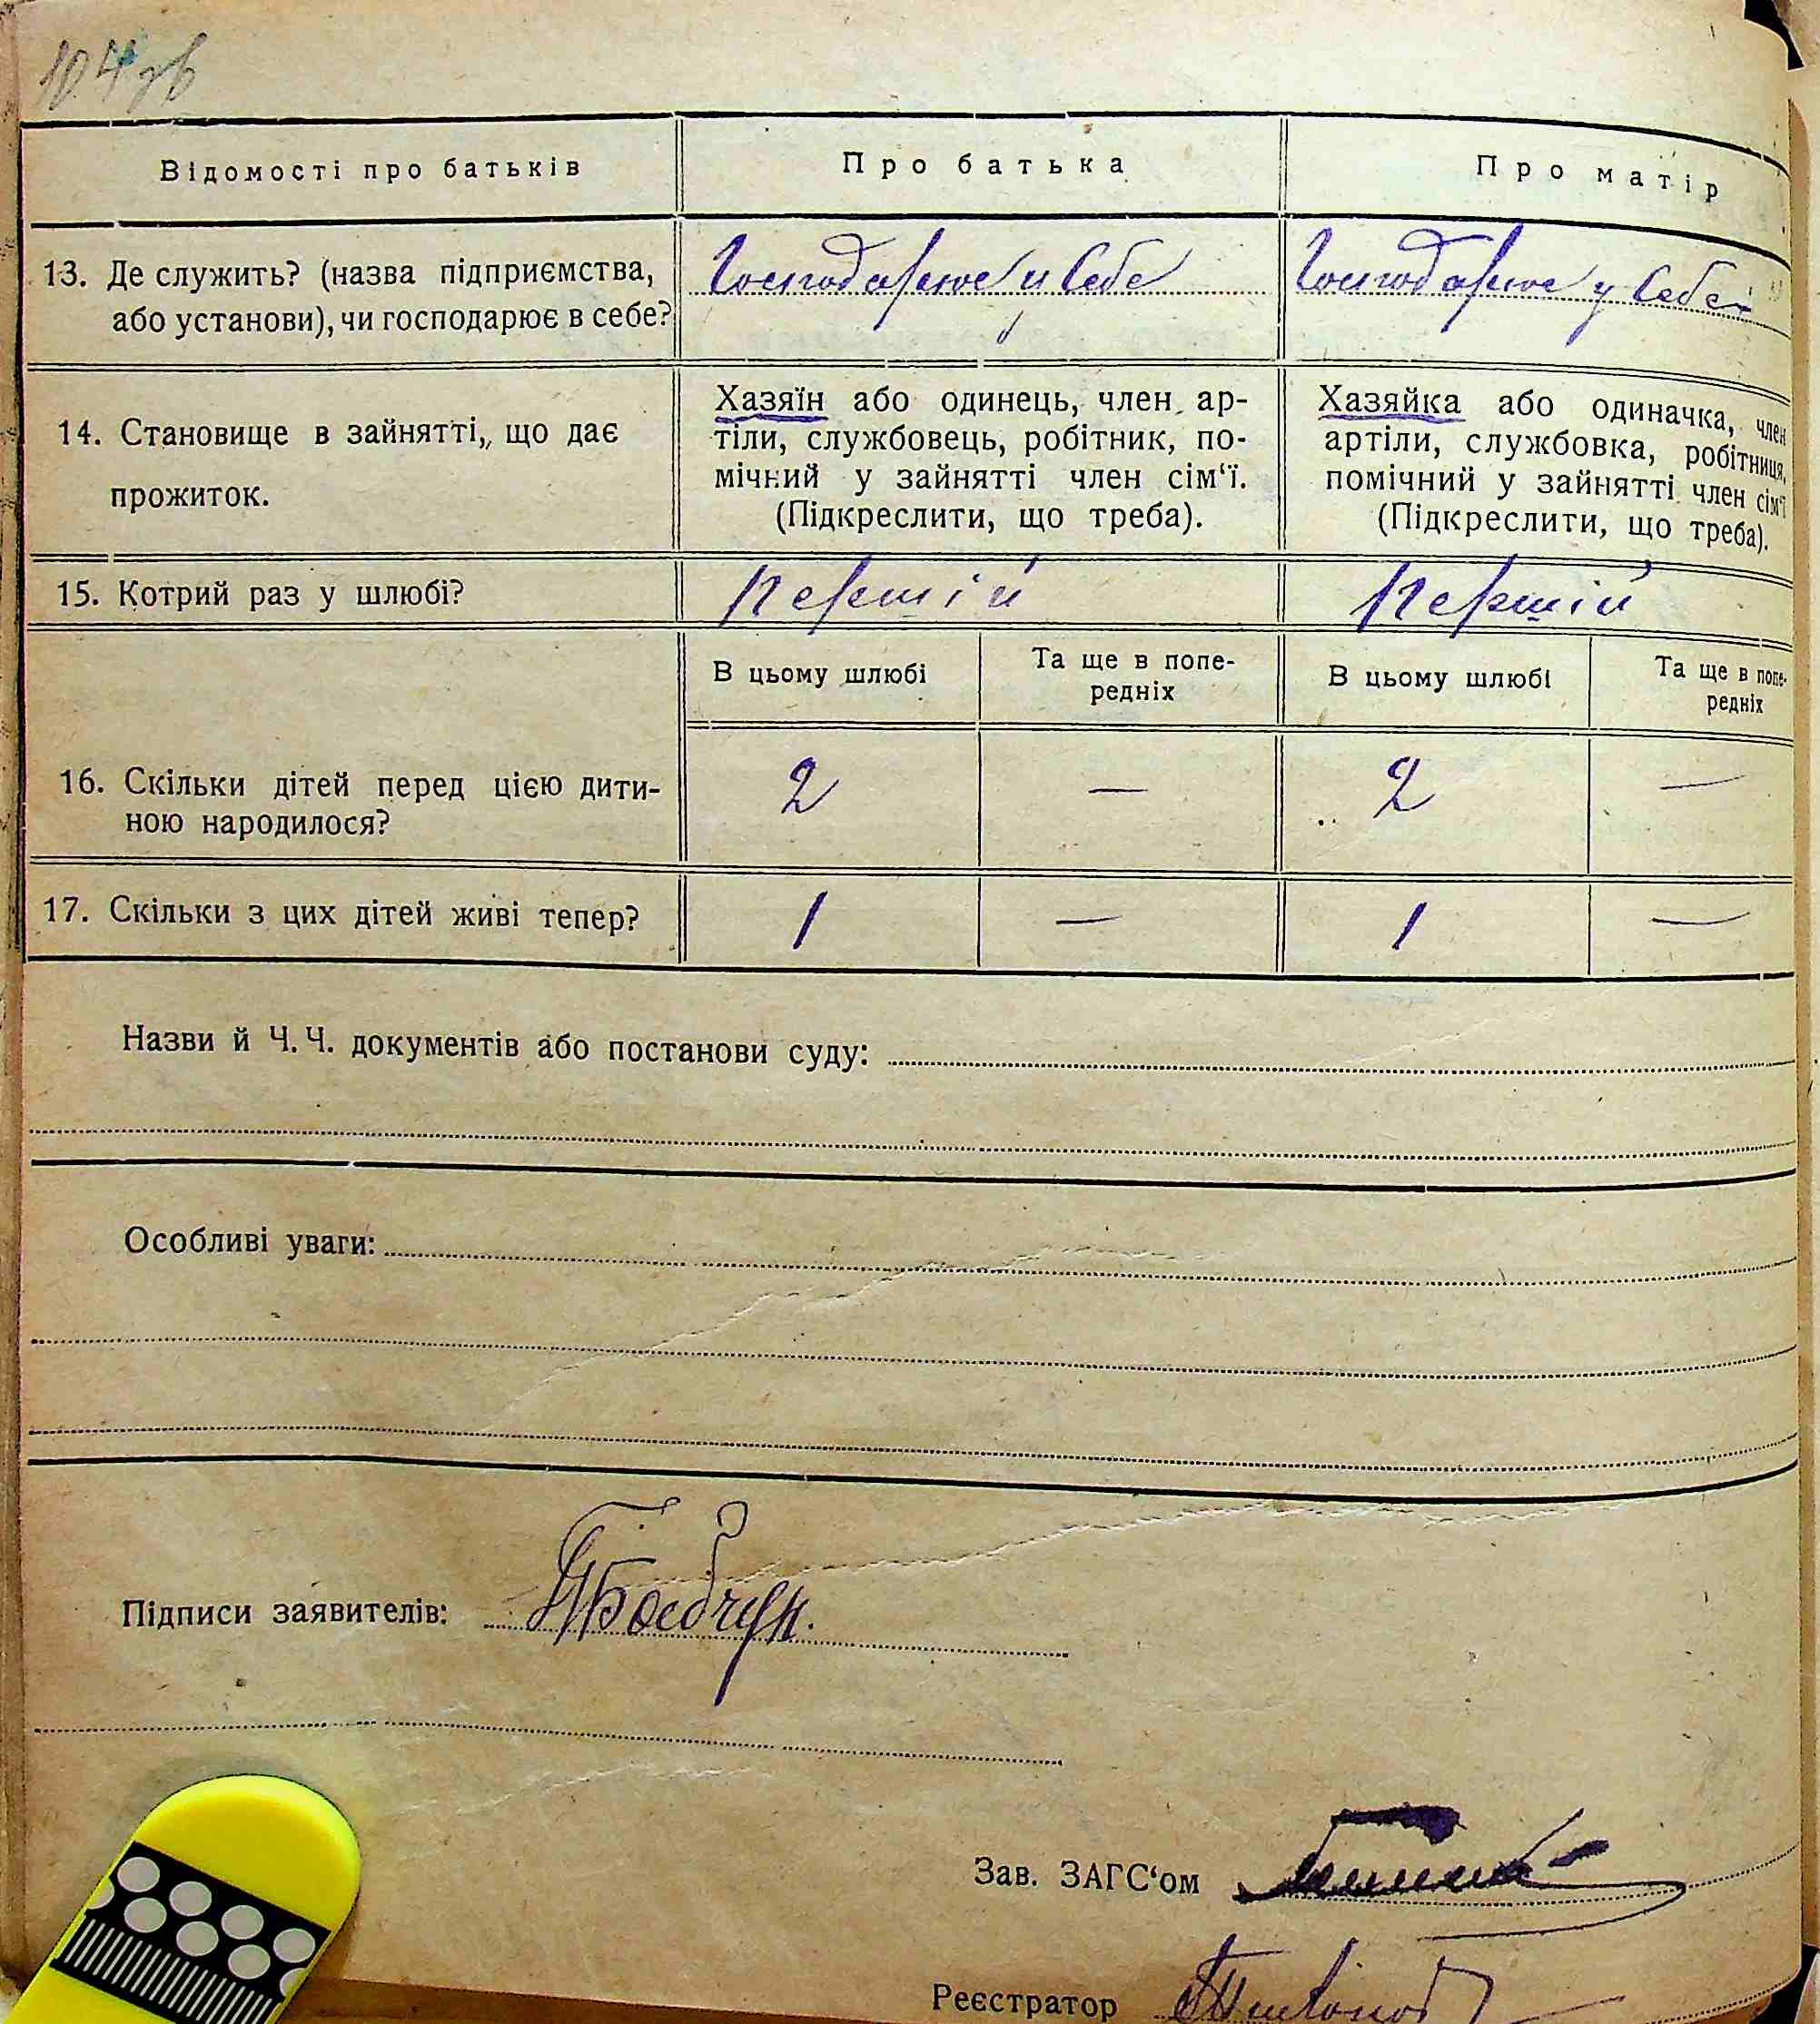 104 зв
Відомості про батьків
Про батька
Про матір
13. Де служить? (назва підприємства,
або установи), чи господарює в себе?
Господарює у себе
Господарює у себе
14. Становище в зайнятті, що дає
прожиток.
Хазяїн або одинець, член ар-
тіли, службовець, робітник, по-
мічний у зайнятті член сім‘ї.
(Підкреслити, що треба).
Хазяйка або одиначка, член
артіли, службовка, робітниця,
помічний у зайнятті член сім‘ї
(Підкреслити, що треба).
15. Котрий раз у шлюбі?
першій
першій
В цьому шлюбі
Та ще в попе-
редніх
В цьому шлюбі
Та ще в попе-
редніх
16. Скільки дітей перед цією дити-
ною народилося?
2 — 2 —
17. Скільки з цих дітей живі тепер?
1 — 1 —
Назви й Ч. Ч. документів або постанови суду:
Особливі уваги:
Підписи заявителів:
Зав. ЗАГС‘ом
Реєстратор